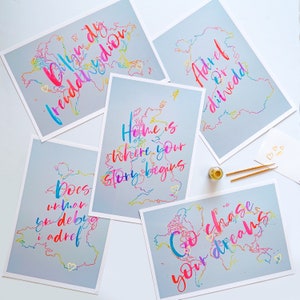 Dilyn dy
freuddwydion
Adref
o'r
diwedd
Home is
where your
story begins
Does
unman
yn debyg
i adref
Go chase
your dreams